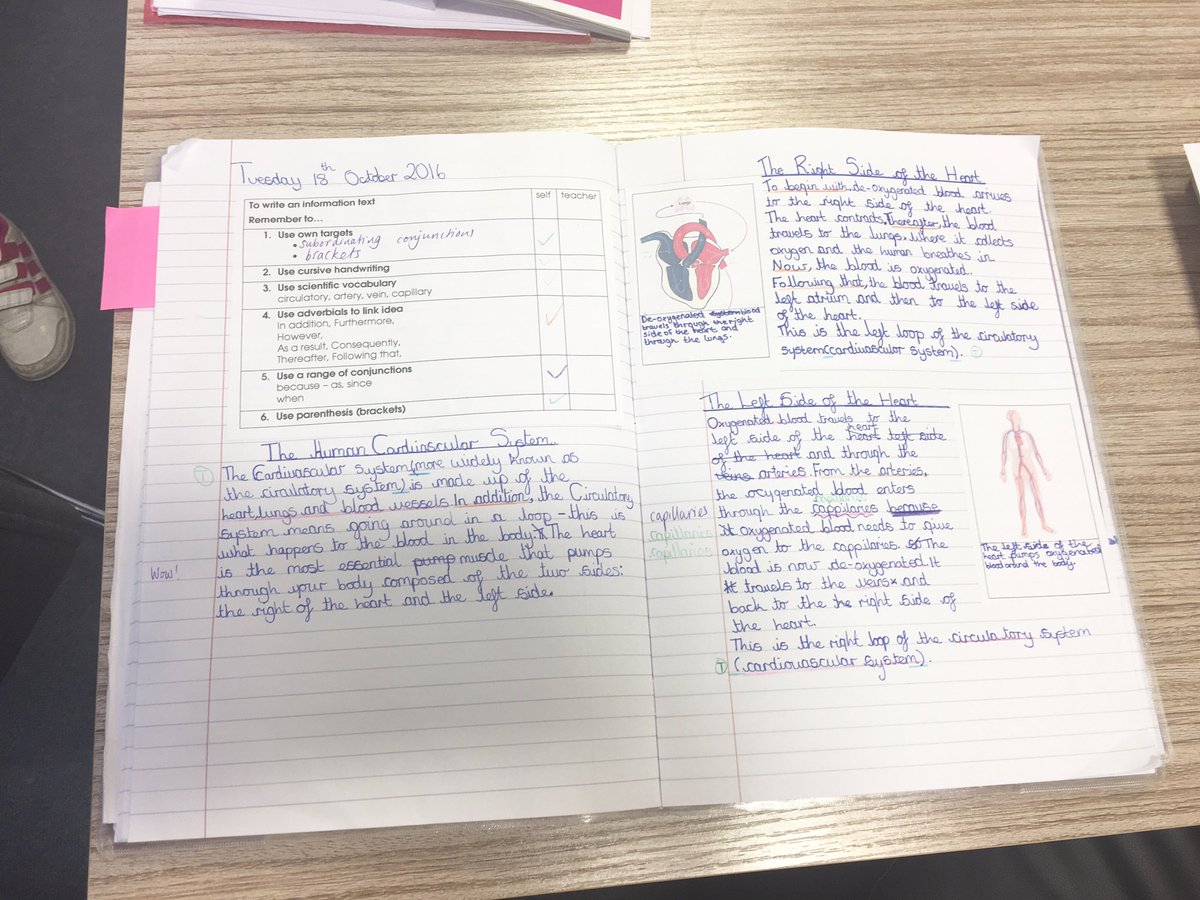 Tuesday 18th October 2016
To write an information text
self
teacher
Remember to...
1. Use own targets
• subordinating conjunctions
• brackets
2. Use cursive handwriting
3. Use scientific vocabulary
circulatory, artery, vein, capillary
4. Use adverbials to link idea
In addition, Furthermore,
However,
As a result, Consequently,
Thereafter, Following that,
5. Use a range of conjunctions
because – as, since
when
6. Use parenthesis (brackets)
The Human Cardiovascular System
T
The Cardivascular system (more widely known as
the circulatory system) is made up of the
heart, lungs and blood vessels. In addition, the Circulatory
system means going around in a loop – this is
what happens to the blood in the body. The heart
is the most essential pump muscle that pumps
Wow!
through your body composed of the two sides:
the right of the heart and the left side.
The Right Side of the Heart
To begin with, de-oxygenated blood arrives
to the right side of the heart.
The heart contracts. Thereafter, the blood
travels to the lungs, where it collects
oxygen and the human breathes in
Now, the blood is oxygenated.
Following that, the blood travels to the
left atrium and then to the left side
of the heart.
This is the left loop of the circulatory
system (cardiovascular system). T
De-oxygenated system blood
travels through the right
side of the heart and
through the lungs.
The Left Side of the Heart
Oxygenated blood travels to the
left side of the heart heart left side
of the heart and through the
veins arteries. From the arteries,
the oxygenated blood enters
through the cappilaries because
it oxygenated blood needs to give
oxygen to the cappilaries. So The
blood is now de-oxygenated. It
it travels to the veins and
back to the he right side of
the heart.
This is the right loop of the circulatory system
T (cardiovascular system).
capillaries
capillaries
capillaries
capillaries
The left side of the
heart pumps oxygenated
blood around the body.